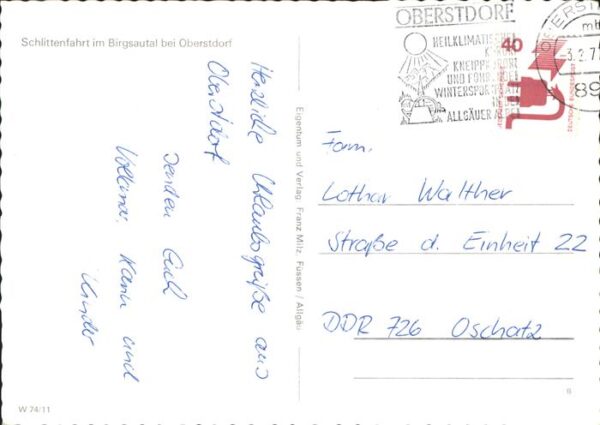 Schlittenfahrt im Birgsautal bei Oberstdorf
Herzliche Urlaubsgrüße aus
Oberstdorf
senden Euch
Volkmar, Karin und
Kinder
W 74/11
Eigentum und Verlag Franz Milz, Füssen / Allgäu
OBERSTDORF
HEILKLIMATISCHER
KNEIPP
UND
WINTERSPORT
ALLGÄUER ALPEN
40
DEUTSCHE BUNDESPOST
-3.2.7
89
Fam.
Lothar Walther
Straße d. Einheit 22
DDR 726 Oschatz